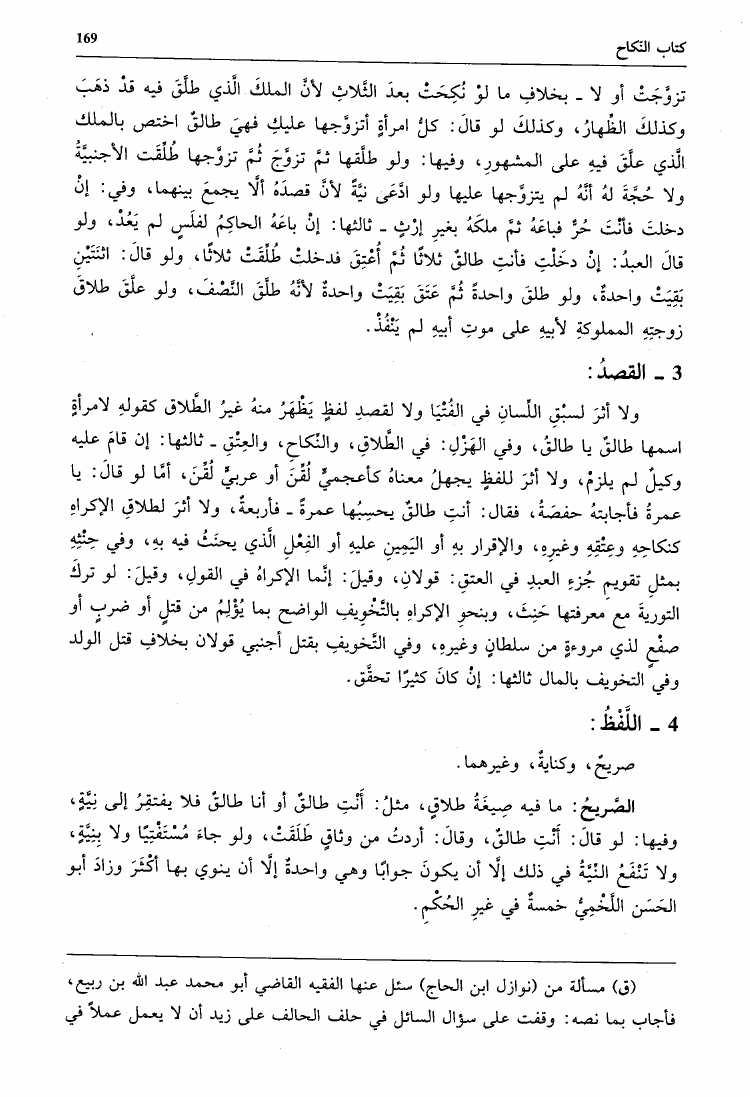 كتاب النّكاح 169
تزوَّجَتْ أو لا ـ بخلافِ ما لوْ نُكِحَتْ بعدَ الثَّلاثِ لأنَّ الملكَ الَّذي طلَّقَ فيه قدْ ذهَبَ
وكذلكَ الظِّهارُ، وكذلكَ لو قالَ: كلُّ امرأةٍ أتزوَّجها عليكِ فهيَ طالقٌ اختص بالملك
الَّذي علَّقَ فيهِ على المشهورِ، وفيها: ولو طلَّقها ثمَّ تزوَّجَ ثُمَّ تزوَّجها طُلِّقَت الأجنبيَّةُ
ولا حُجَّةَ لهُ أنَّهُ لم يتزوَّجها عليها ولو ادَّعَى نيَّةً لأنَّ قصدَهُ ألَّا يجمعَ بينهما، وفي: إنْ
دخلتَ فأنْتَ حُرٌّ فباعَهُ ثمَّ ملكَهُ بغيرِ إرْثٍ ـ ثالثها: إنْ باعَهُ الحاكِمُ لفلَسٍ لم يَعُدْ، ولو
قالَ العبدُ: إنْ دخَلْتِ فأنتِ طالقٌ ثلاثًا ثُمَّ أُعْتِقَ فدخلتْ طُلِّقَتْ ثلاثًا، ولو قالَ: اثنَتَيْنِ
بَقِيَتْ واحدةٌ، ولو طلقَ واحدةً ثُمَّ عَتَقَ بَقِيَتْ واحدةٌ لأنَّهُ طلَّقَ النَّصْفَ، ولو علَّقَ طلاقَ
زوجتِهِ المملوكةِ لأبيهِ على موتِ أبيهِ لم يَنْفُذْ.
3 ـ القصدُ:
ولا أثرَ لسبْقِ اللِّسانِ في الفُتْيَا ولا لقصدِ لفظٍ يَظْهَرُ منهُ غيرُ الطَّلاق كقولهِ لامرأةٍ
اسمها طالقٌ يا طالقُ، وفي الهَزْلِ: في الطَّلاقِ، والنّكاحِ، والعِتْقِ ـ ثالثها: إن قامَ عليه
وكيلٌ لم يلزمْ، ولا أثرَ للفظٍ يجهلُ معناهُ كأعجميٍّ لُقِّنَ أو عربيٍّ لُقِّنَ، أمَّا لو قالَ: يا
عمرةُ فأجابتهُ حفصَةُ، فقال: أنتِ طالقٌ يحسِبُها عمرةً ـ فأربعةٌ، ولا أثرَ لطلاقِ الإكراهِ
كنكاحِهِ وعِتْقِهِ وغيرِهِ، والإقرار بهِ أو اليَمِينِ عليهِ أو الفِعْلِ الَّذي يحنَثُ فيه بهِ، وفي حِنْثِهِ
بمثلِ تقويمِ جُزءِ العبدِ في العتقِ: قولانِ، وقيلَ: إنَّما الإكراهُ في القولِ، وقيلَ: لو تركَ
التوريةَ مع معرفتها حَنِثَ، وبنحوِ الإكراهِ بالتَّخْوِيفِ الواضحِ بما يُؤْلِمُ من قتلٍ أو ضربٍ أو
صفْعٍ لذي مروءةٍ من سلطانٍ وغيرِهِ، وفي التَّخويفِ بقتل أجنبي قولان بخلافِ قتل الولد
وفي التخويف بالمال ثالثها: إنْ كانَ كثيرًا تحقَّق.
4 ـ اللَّفْظُ:
صريحٌ، وكنايةٌ، وغيرهما.
الصَّريحُ: ما فيه صِيغَةُ طلاقٍ، مثلُ: أَنْتِ طالقٌ أو أنا طالقٌ فلا يفتقِرُ إلى نِيَّةٍ،
وفيها: لو قالَ: أَنْتِ طالقٌ، وقالَ: أردتُ من وثاقٍ طَلَقَتْ، ولو جاءَ مُسْتَفْتِيًا ولا بِنِيَّةٍ،
ولا تَنْفَعُ النيَّةُ في ذلك إلَّا أن يكونَ جوابًا وهي واحدةٌ إلَّا أن ينوي بها أكْثَرَ وزادَ أبو
الحَسَن اللَّخْمِيُّ خمسةٌ في غيرِ الحُكْمِ.
(ق) مسألة من (نوازل ابن الحاج) سئل عنها الفقيه القاضي أبو محمد عبد الله بن ربيع،
فأجاب بما نصه: وقفت على سؤال السائل في حلف الحالف على زيد أن لا يعمل عملاً في